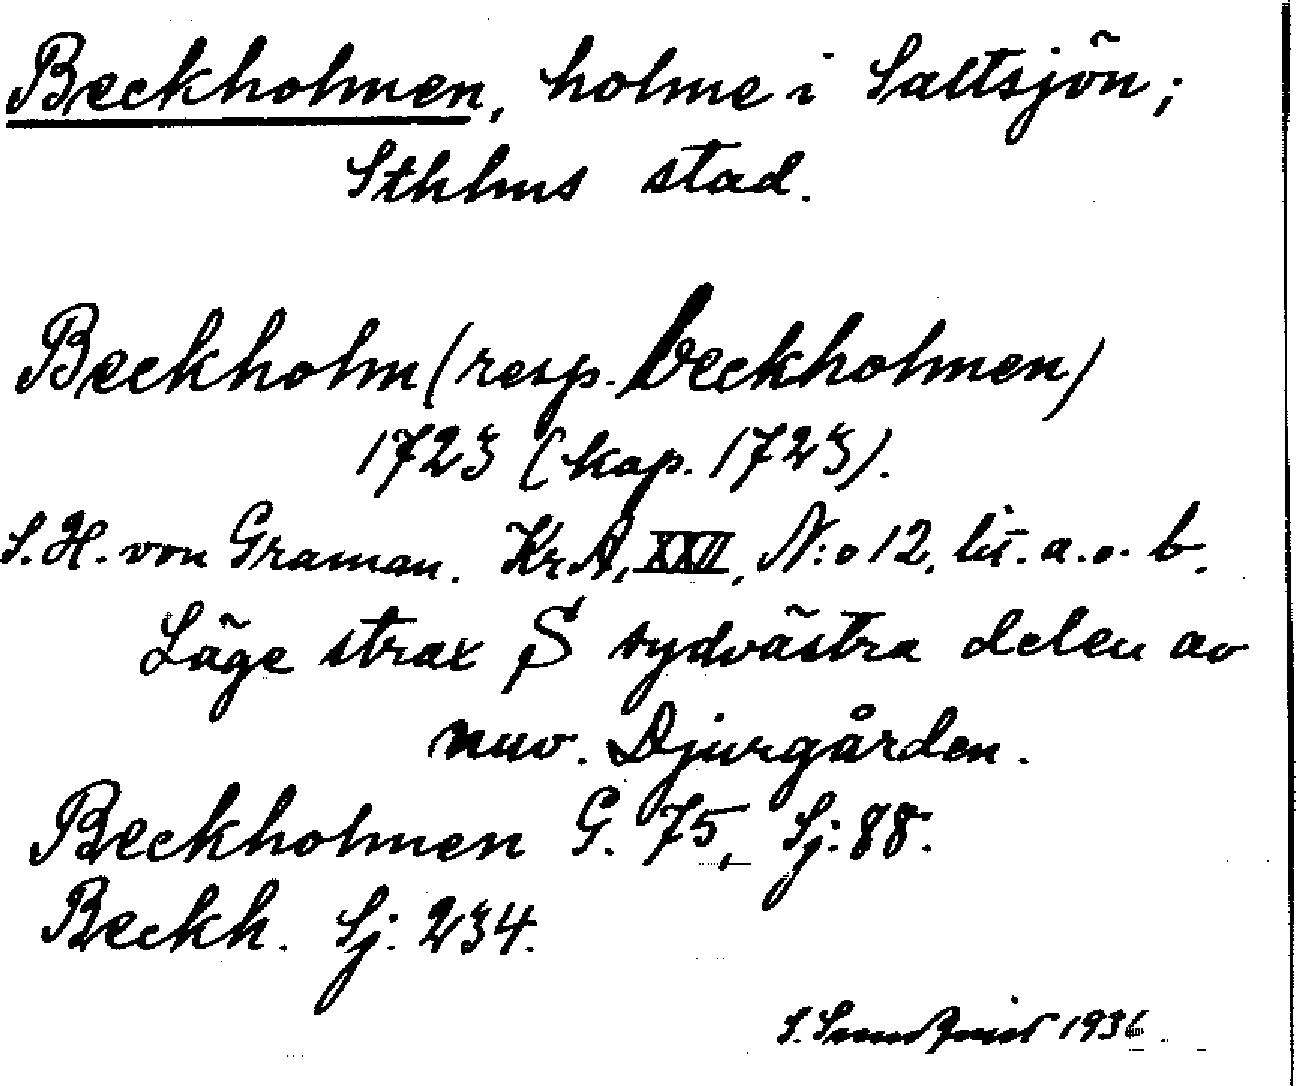 Beckholmen, holme i Saltsjön;
Sthlms stad.
Beckholm (resp. beckholmen)
1723 (kap. 1723).
S. H. von Graman. KrA, XXII, N:o 12, lit. a. o. b.
Läge strax S sydvästra delen av
nuv. Djurgården.
Beckholmen G. 75, Sj: 88.
Beckh. Sj: 234.
S. 1936.